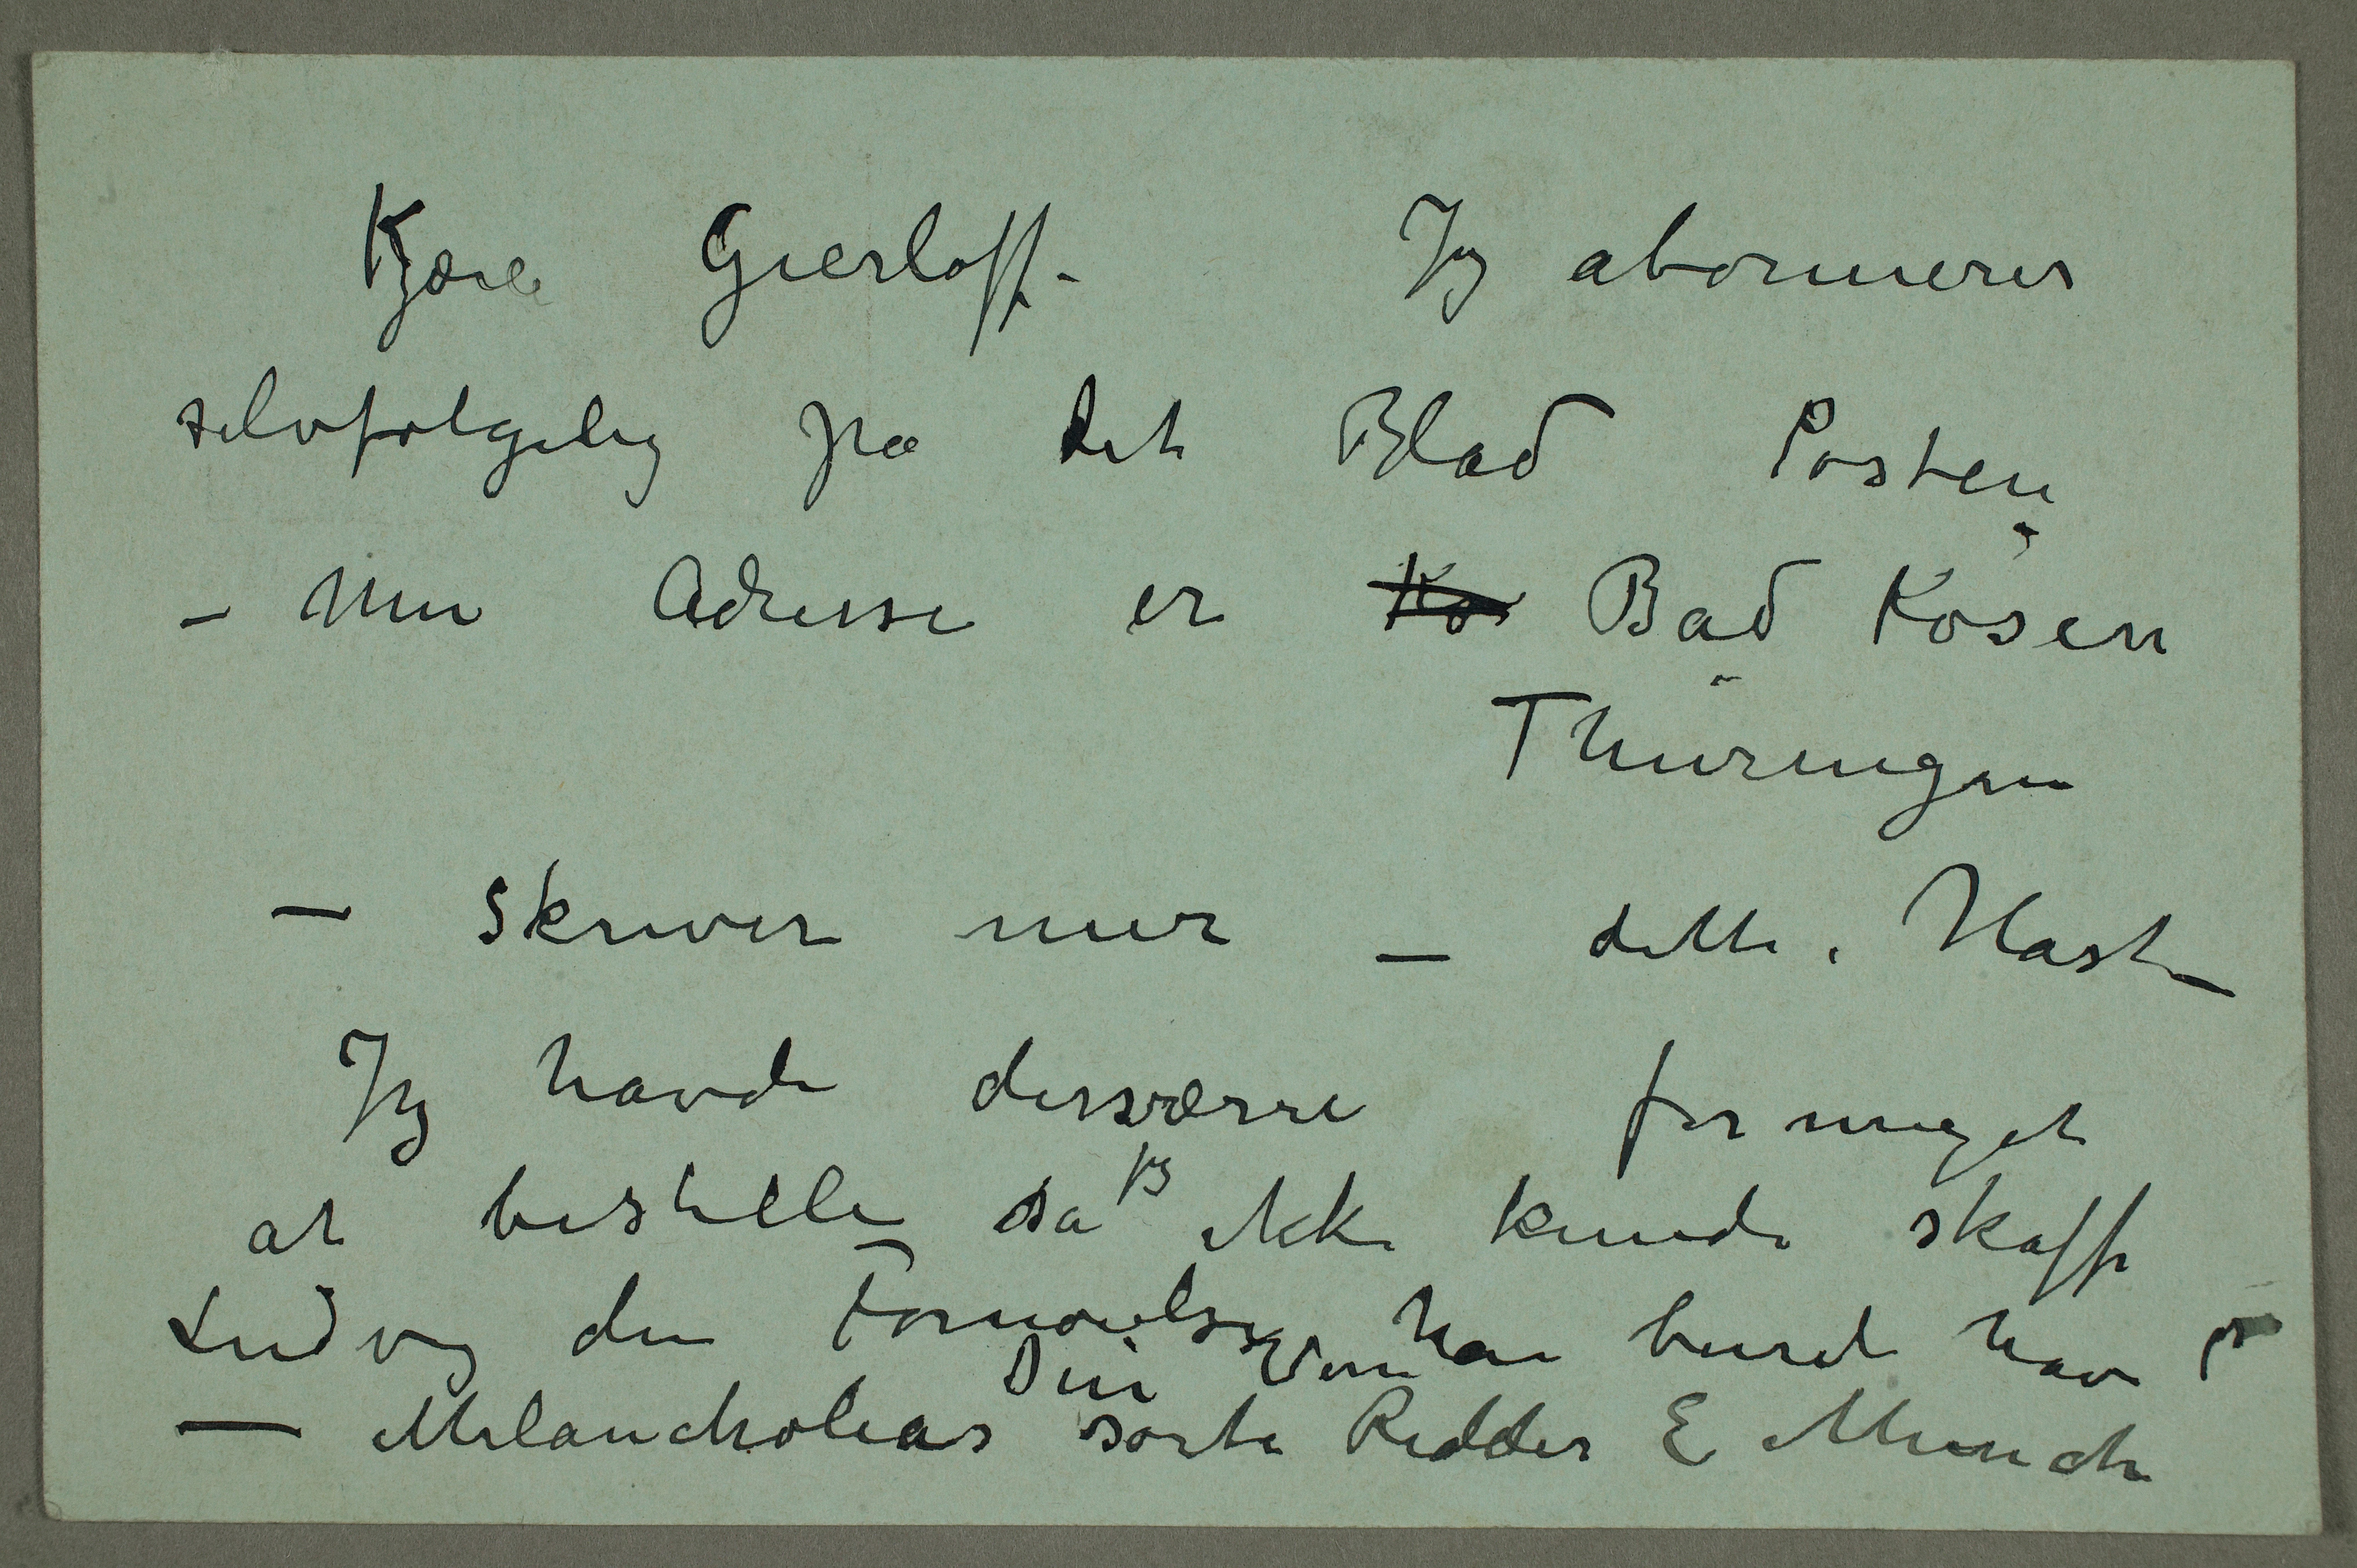 Kjære Gierløff – Jeg abonnerer
selvfølgelig på det Blad Posten
– Min Adresse er Kø Bad Kösen
Thüringen
– Skriver mer – dette i Hast –
Jeg havde desværre for meget
at bestille så jeg ikke kunde skaffe
Ludvig den Fornøielse han burde have
Din Ven
– Melancholias sorte Ridder E Munch